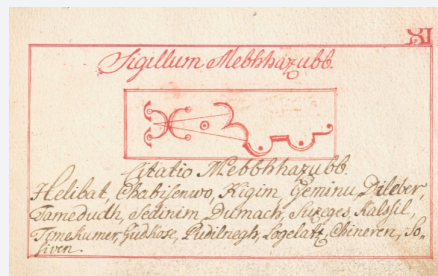 IX
Sigillum Mebhhazubb.
Citatio Mebbhhazubb.
Helibat, Chabisenwo, Kigim, Geminu, Dileber,
Samedudh, Sedinim, Dutmach, Suzeges, Kalssil,
Temekumer, Gudkose, Pudilnegh, Logelatz, Chineren, So-
siven